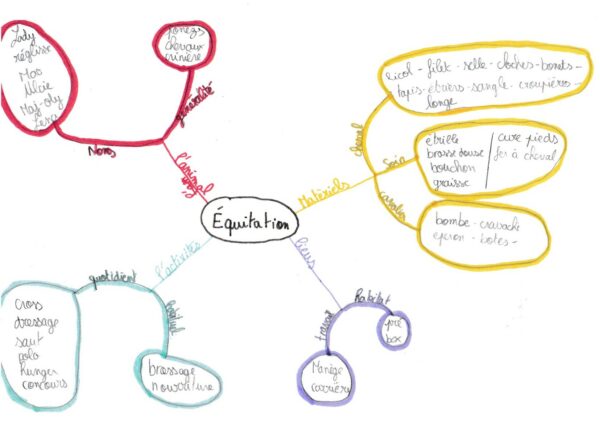 Lady
réglisse
Moo
Maj-oly
Noms
poneys
chevaux
crinière
généralité
l'animal
Équitation
Matériels
cheval
licol - filet - selle - cloches - bonnets -
tapis - étriers - sangle - croupières -
longe
Soin
etrille
brosse douse
bouchon
graisse
cure pieds
fer à cheval
cavalier
bombe - cravache
eperon - botes -
l'activités
quotidient
cross
dressage
saut
polo
hunger
concours
brossage
nourriture
lieus
travail
Manège
carrière
habitat
pré
box